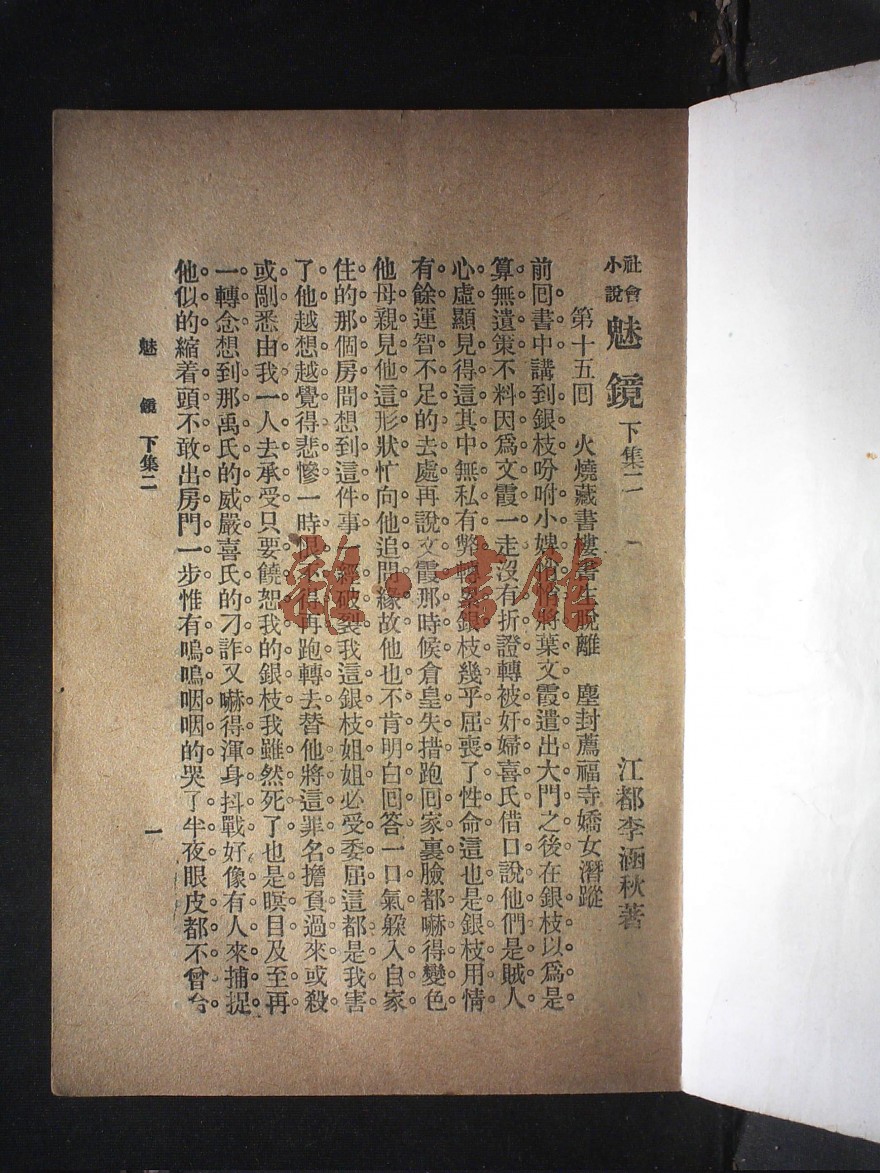 社會小說 魅鏡 下集二 江都李涵秋著
第十五囘 火燒藏書樓書生脫離 塵封薦福寺嬌女潛蹤
前囘書中講到銀枝吩咐小婢悄悄將葉文霞遣出大門之後在銀枝以爲是
算無遺策不料因爲文霞一走沒有折證轉被奸婦喜氏借口說他們是賊人
心虛顯見得這其中無私有弊轉累銀枝幾乎屈喪了性命這也是銀枝用情
有餘運智不足的去處再說文霞那時候倉皇失措跑回家裏臉都嚇得變色
他母親見他這形狀忙向他追問緣故他也不肯明白回答一口氣躱入自家
住的那個房間想到這件事一經破裂我這銀枝姐姐必受委屈這都是我害
了他越想越覺得悲慘一時恨不得再跑轉去替他將這罪名擔負過來或殺
或剮悉由我一人去承受只要饒恕我的銀枝我雖然死了也是暝目及至再
一轉念想到那禹氏的威嚴喜氏的刁詐又嚇得渾身抖戰好像有人來捕捉
他似的縮着頭不敢出房門一步惟有嗚嗚咽咽的哭了半夜眼皮都不曾合
魅鏡 下集二
一
雜·書館